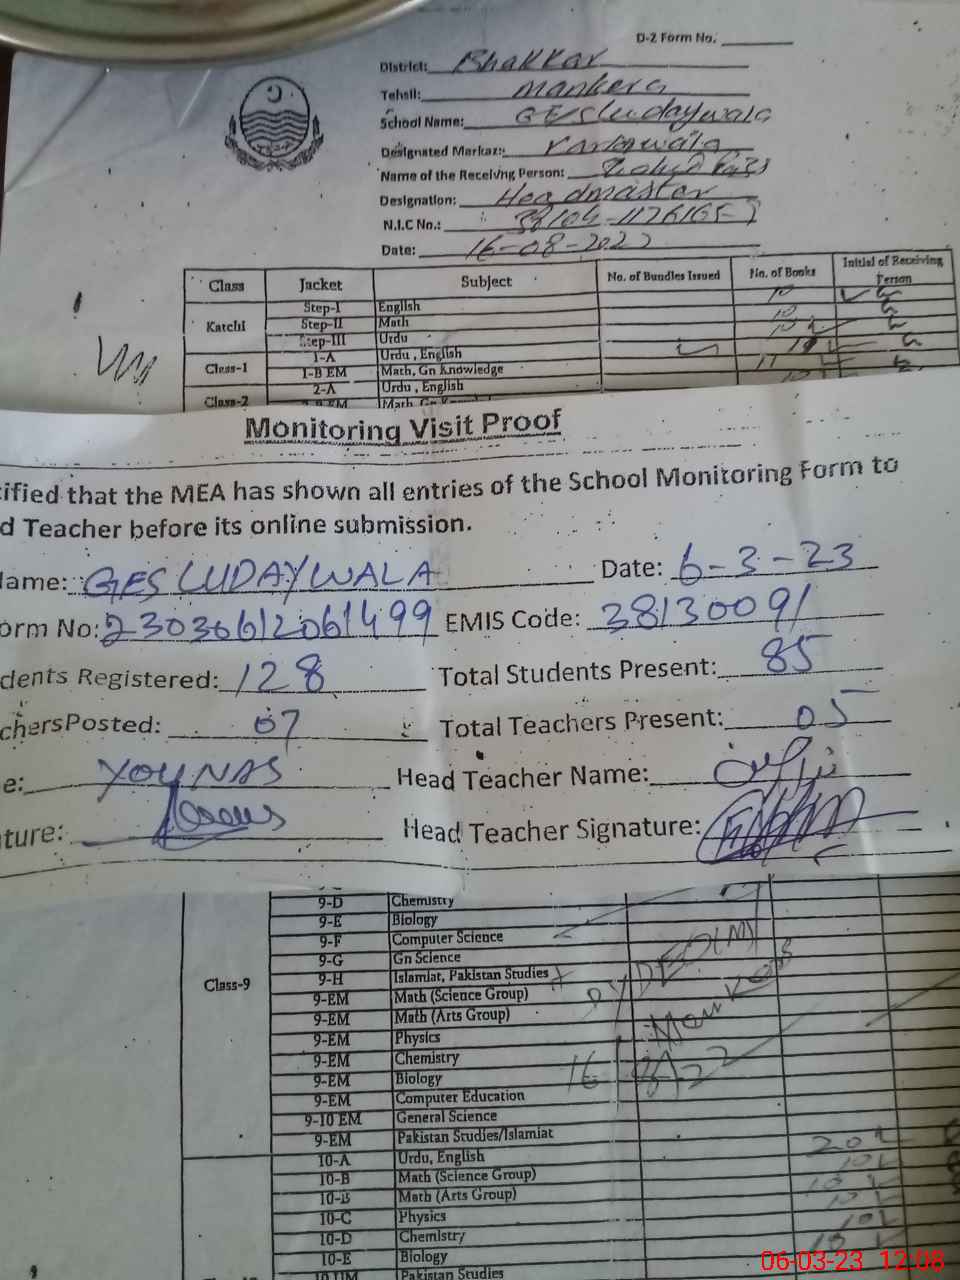 D-2 Form No.
District: Bhakkar
Tehsil: Mankera
School Name: GES Ludaywala
Designated Markaz:
Name of the Receiving Person:
Designation: Headmaster
N.I.C No.:
Date: 16-08-2022
Class Jacket Subject No. of Bundles Issued No. of Books Initial of Receiving Person
Katchi Step-I English 10
Step-II Math 10
Step-III Urdu 10
Class-1 1-A Urdu , English
1-B EM Math, Gn Knowledge
Class-2 2-A Urdu , English
Monitoring Visit Proof
tified that the MEA has shown all entries of the School Monitoring Form to
d Teacher before its online submission.
Name: GES LUDAYWALA Date: 6-3-23
orm No: 23030612061499 EMIS Code: 38130091
dents Registered: 128 Total Students Present: 85
chersPosted: 07 Total Teachers Present: 05
e: YOUNAS Head Teacher Name:
ture: Head Teacher Signature:
9-D Chemistry
9-E Biology
9-F Computer Science
9-G Gn Science
Class-9 9-H Islamiat, Pakistan Studies
9-EM Math (Science Group)
9-EM Math (Arts Group)
9-EM Physics
9-EM Chemistry
9-EM Biology
9-EM Computer Education
9-10 EM General Science
9-EM Pakistan Studies/Islamiat
Dy DEO(M)
Mankera
16/8/22
10-A Urdu, English 20
10-B Math (Science Group) 10
10-B Math (Arts Group) 10
10-C Physics 10
10-D Chemistry 10
10-E Biology
10 UM Pakistan Studies
06-03-23 12:08